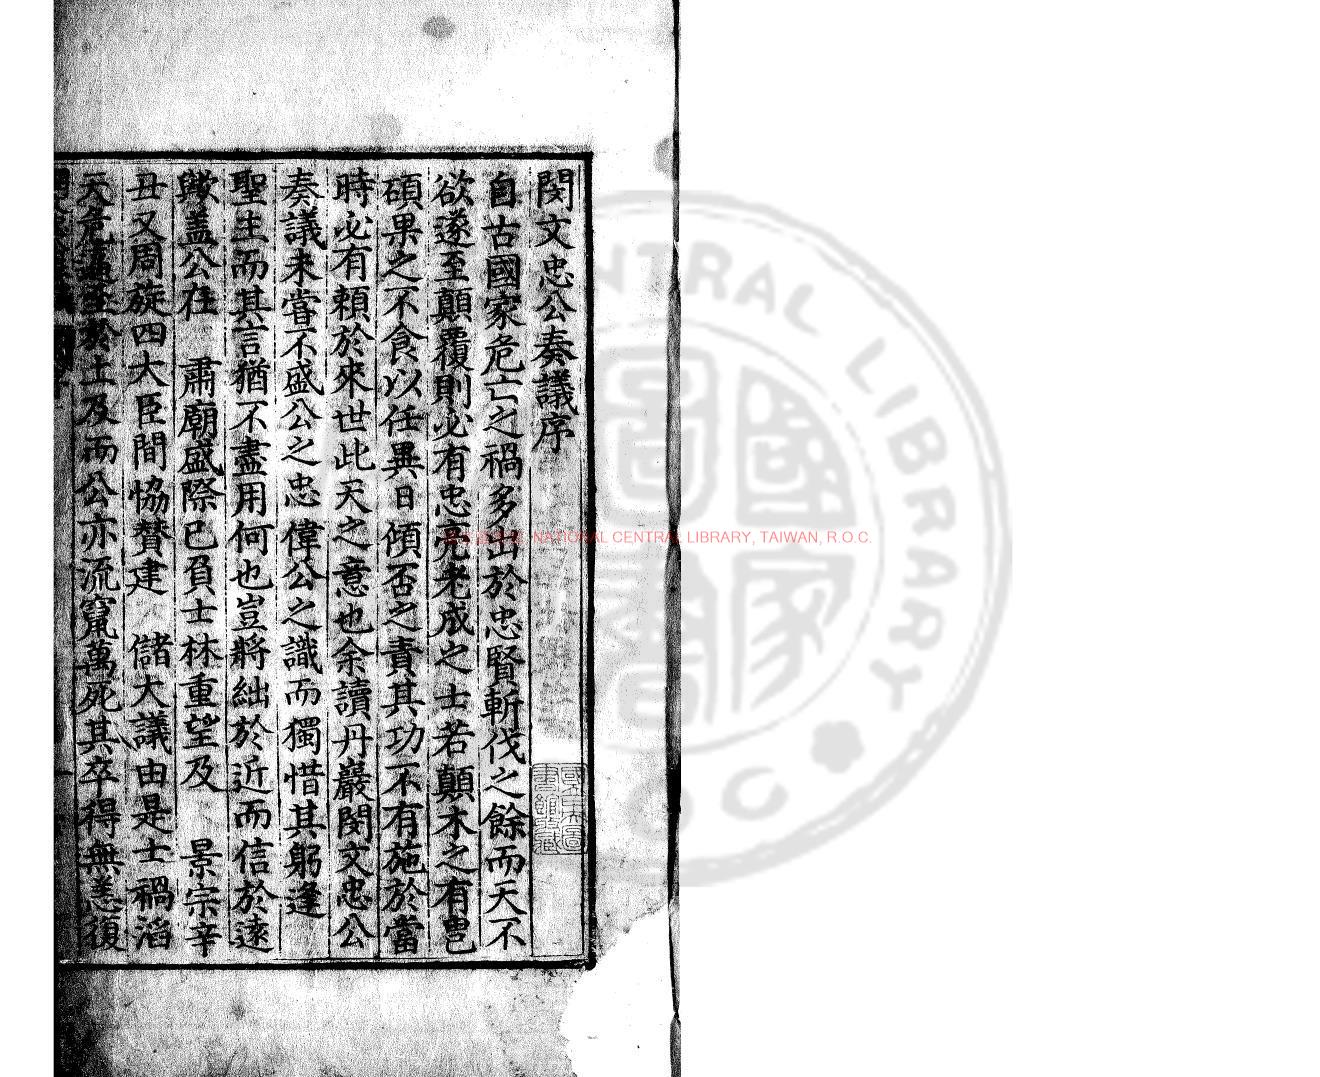 閔文忠公奏議序
自古國家危亡之禍多出於忠賢斬伐之餘而天不
欲遂至顛覆則必有忠亮老成之士若顛木之有甹
碩果之不食以任異日傾否之責其功不有施於當
時必有賴於來世此天之意也余讀丹巖閔文忠公
奏議未嘗不盛公之忠偉公之識而獨惜其躬逢
聖主而其言猶不盡用何也豈將絀於近而信於遠
歟盖公在 肅廟盛際已負士林重望及 景宗辛
丑又周旋四大臣間恊賛建 儲大議由是士禍滔
天危逼至於上及而公亦流竄萬死其卒得無恙復
國立中央圖書館藏
NATIONAL CENTRAL LIBRARY, TAIWAN, R.O.C.
NTRAL LIBRARY